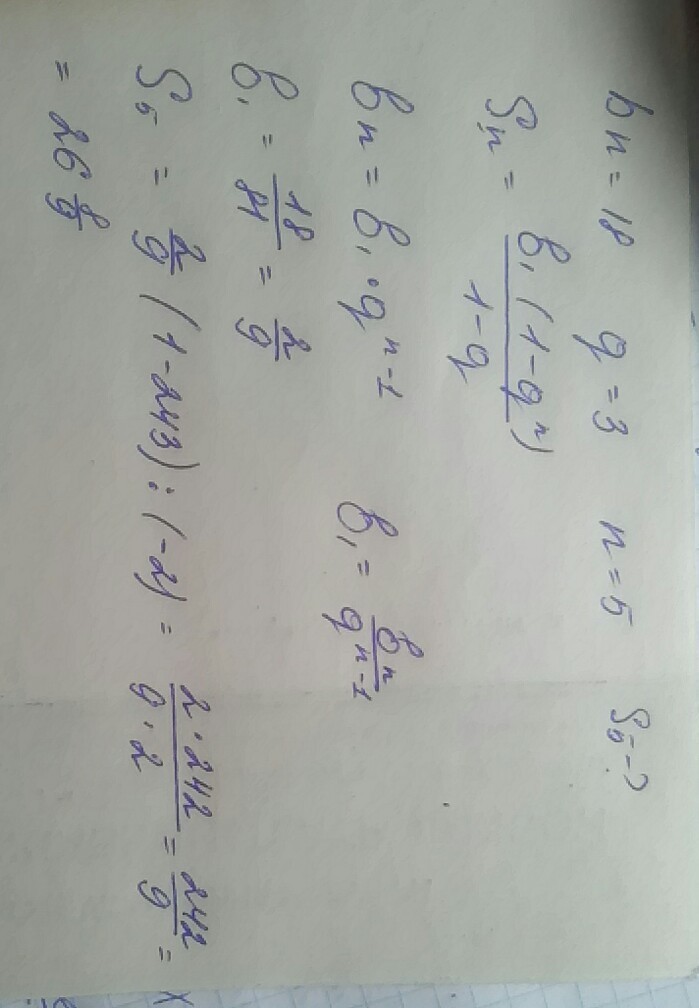 bn = 18 q = 3 n = 5 S₅ - ?
Sn = b₁(1-qⁿ)/1-q
bn = b₁ · qⁿ⁻¹ b₁ = bn/qⁿ⁻¹
b₁ = 18/81 = 2/9
S₅ = 2/9 (1-243) : (-2) = 2·242/9·2 = 242/9 =
= 26 8/9